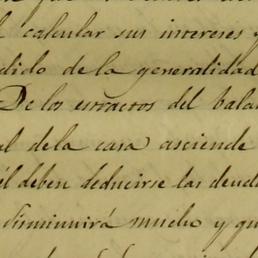 calcular sus intereses y
dido de la generalidad
De los estractos del bala
al de la casa asciende
él deben deducirse las deud
disminuirá mucho y qu